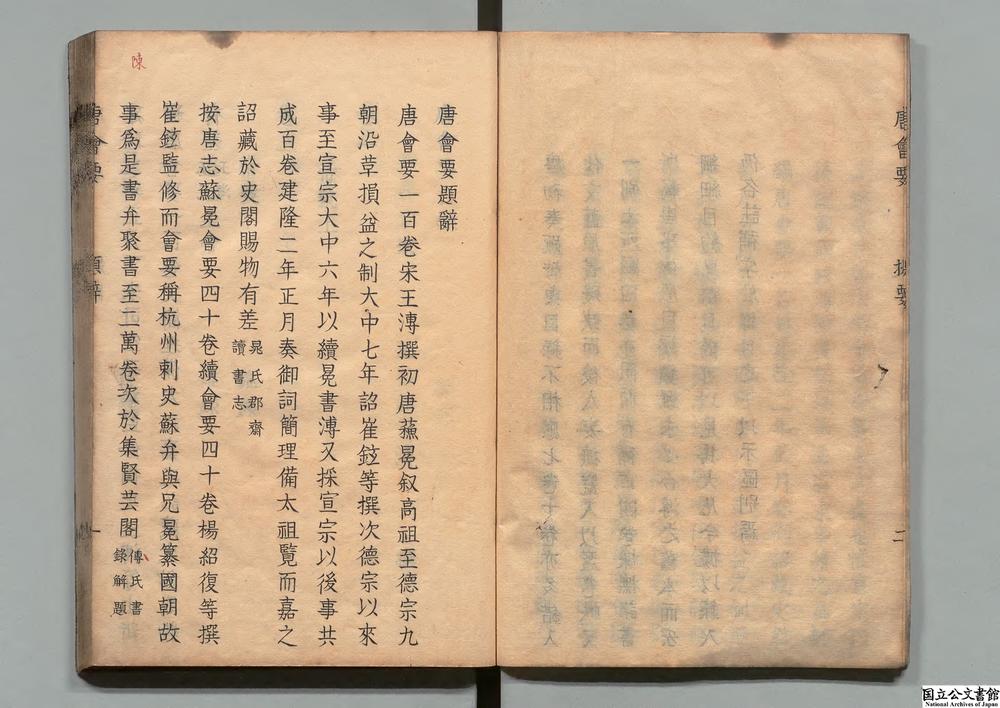 唐會要 提要 二
唐會要題辭
唐會要一百卷宋王溥撰初唐蘓冕叙高祖至德宗九
朝沿革損益之制大中七年詔崔鉉等撰次德宗以來
事至宣宗大中六年以續冕書溥又採宣宗以後事共
成百卷建隆二年正月奏御詞簡理備太祖覽而嘉之
詔藏於史閣賜物有差晁氏郡齋
讀書志
按唐志蘇冕會要四十卷續會要四十卷楊紹復等撰
崔鉉監修而會要稱杭州刺史蘇弁與兄冕纂國朝故
事為是書弁聚書至二萬卷次於集賢芸閣傳氏書
錄解題
陳
唐會要 題辭 一
国立公文書館
National Archives of Japan